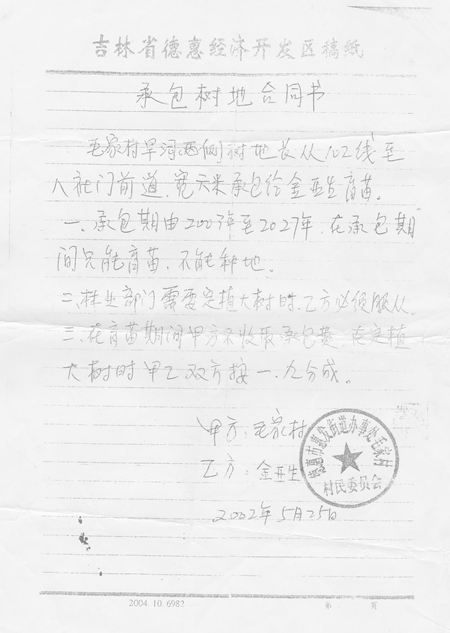 吉林省德惠经济开发区稿纸
承包树地合同书
毛家村旱河两侧树地长从102线至
八社门前道,宽六米承包给金亚生育苗。
一、承包期由2003年至2027年,在承包期
间只能育苗,不能种地。
二、林业部门需要定植大树时,乙方必须服从。
三、在育苗期间甲方不收取承包费,在定植
大树时甲乙双方按一、九分成。
甲方:毛家村
乙方:金亚生
德惠市惠众街道办事处毛家村
村民委员会
2002年5月25日
2004.10.6982
第 页